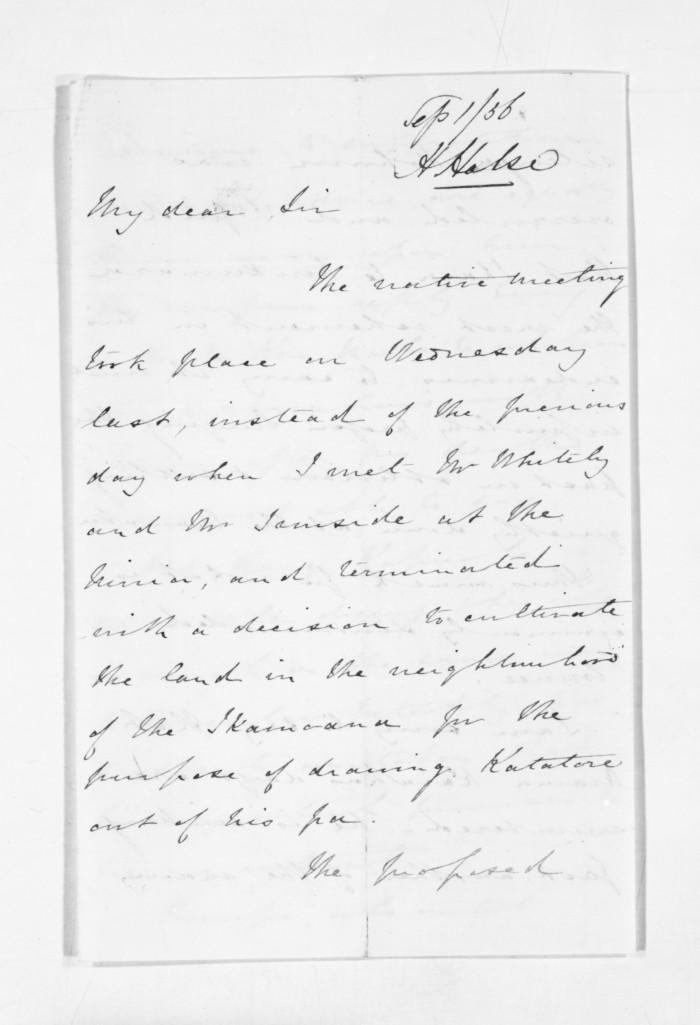 Sep 1/56
H Halse
My dear Sir
The native meeting
took place on Wednesday
last, instead of the previous
day when I met Mr Whitely
and Mr Ironside at the
Ninia, and terminated
with a decision to cultivate
the land in the neighbourhood
of the Ikamoana for the
purpose of drawing Katatore
out of his pa.
The proposed